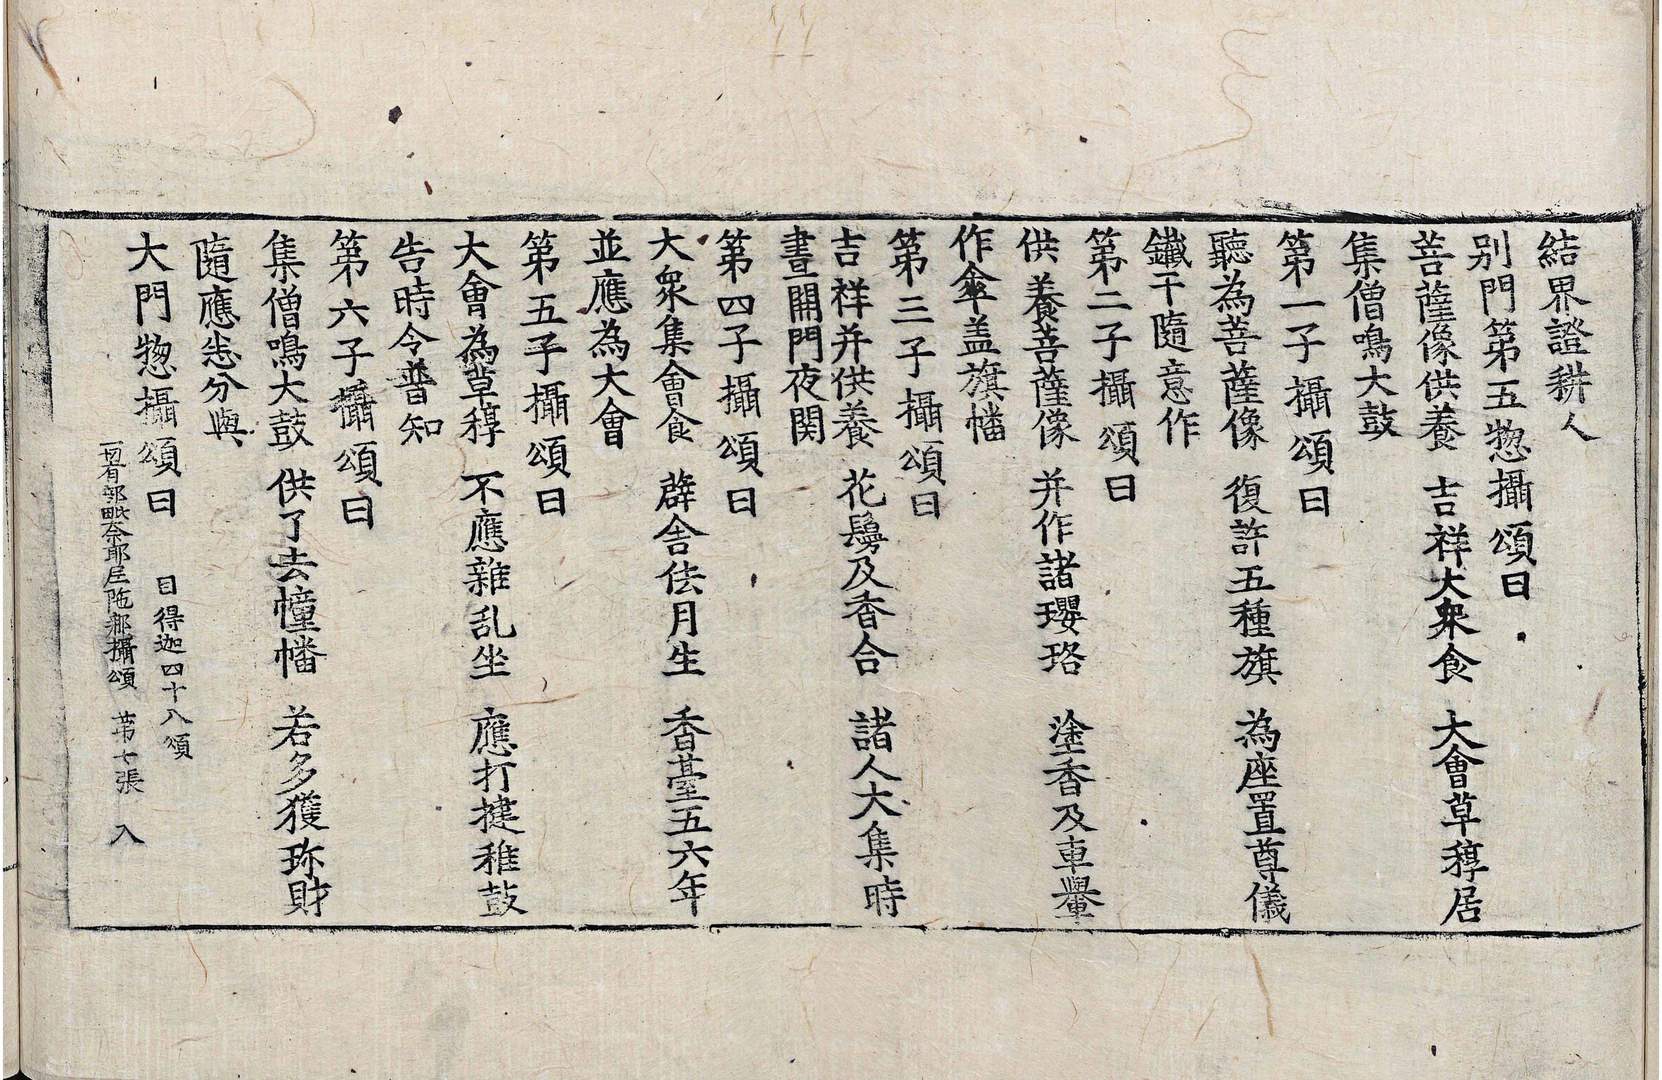 結界證耕人
别門第五惣攝頌曰
菩薩像供養　吉祥大衆食　大會草稕居
集僧鳴大鼓
第一子攝頌曰
聽為菩薩像　復許五種旗　為座置尊儀
鐵干隨意作
第二子攝頌曰
供養菩薩像　并作諸瓔珞　塗香及車轝
作傘盖旗幡
第三子攝頌曰
吉祥并供養　花鬘及香合　諸人大集時
晝開門夜関
第四子攝頌曰
大衆集會食　薜舍佉月生　香臺五六年
並應為大會
第五子攝頌曰
大會為草稕　不應雜乱坐　應打揵稚鼓
告時令普知
第六子攝頌曰
集僧鳴大鼓　供了去幢幡　若多獲珎財
隨應悉分與
大門惣攝頌曰　目得迦四十八頌
有部毗奈耶尼陁那攝頌　苐七張　入